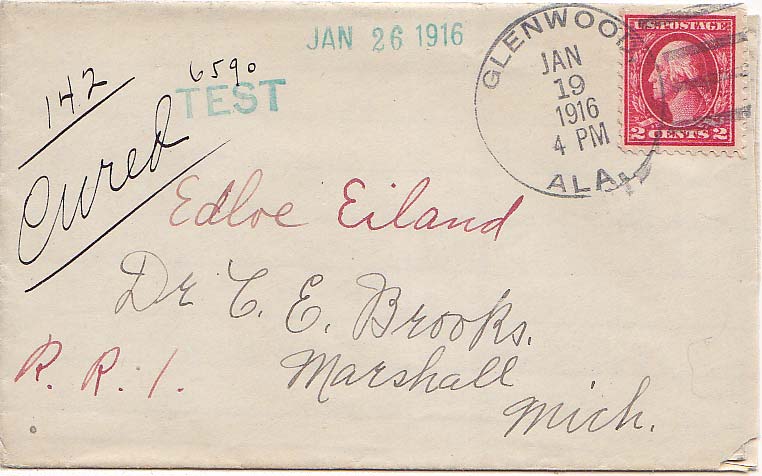 JAN 26 1916
GLENWOOD
JAN
19
1916
4 PM
ALA.
U.S. POSTAGE
2 CENTS 2
142
6590
TEST
Cured
Edloe Eiland
Dr C. E. Brooks.
R. R. 1.
Marshall
Mich.